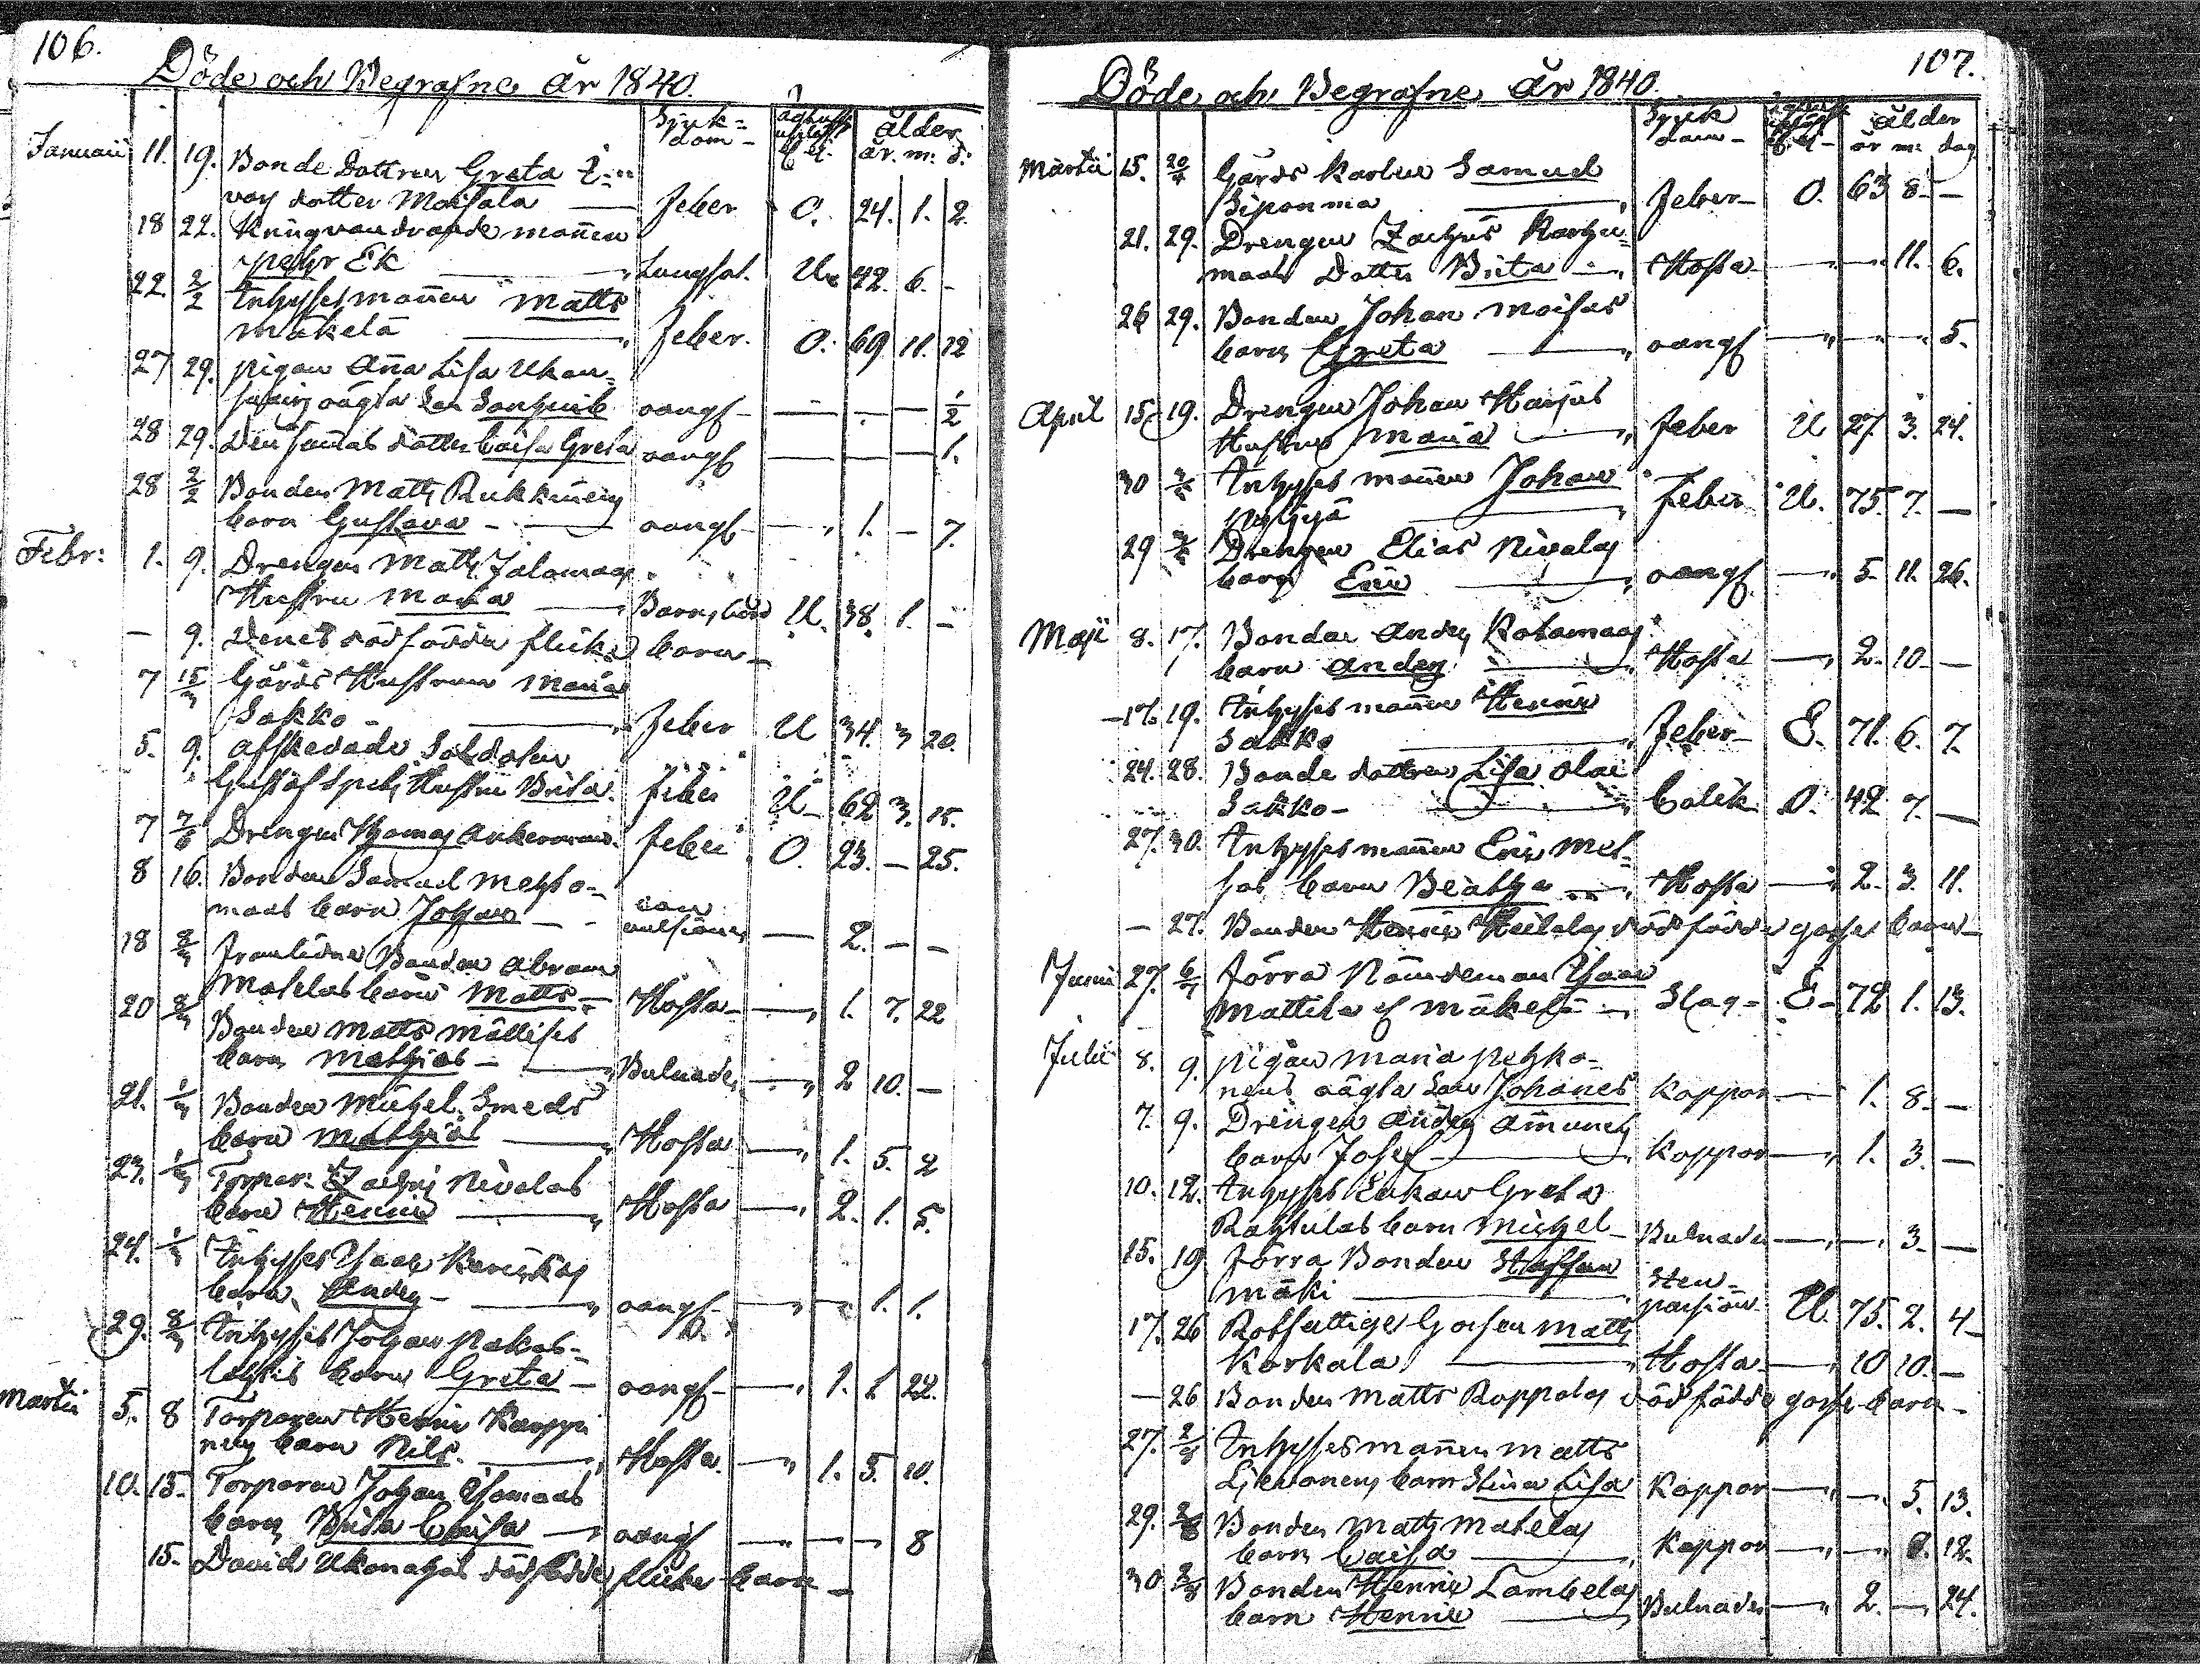 106.
Döde och Begrafne år 1840.
Sjuk= dom- ålder
år. m: d:
Januarii 11. 19. Bonde Dottren Greta
dotter Moisala — feber O. 24. 1. 2.
18 22. mannen
Pehr Ek — Lungsot. U. 42. 6. -
22. 2/2 Inhysesmannen Matts
Mäkelä — feber. O. 69 11. 12
27 29. Pigan Anna Lisa Ukon=
oägta Son oangf — — — 1/2
28 29. Den sammas dotter Caisa Greta oangf — — — 1.
28 2/2 Bonden Matts Rukkinens
barn Gustava — oangf — 1. — 7.
Febr: 1. 9. Drengen Matts Jalamaas
Hustru Maria — Barnsbörd U. 38. 1. -
— 9. Denes dödfödda flicke barn —
7 15/3 Gårds Hustrun Maria
Sakko — feber U 34. 3 20.
5. 9. Afskedade Soldaten
Gustaf Spets Hustru Brita. feber U 62 3. 15.
7 Drengen Thomas Ankerman. feber O. 23. — 25.
8 16. Bonden Samuel Mehto-
maas barn Johan — con
vulsioner — 2. — —
18 8/3 Framlidne Bonden Abram
Matelas barn Matts — Hosta — 1. 7. 22
20 8/3 Bonden Matts
barn Mathias — Bulnader — 2 10. —
21. 1/3 Bonden Michel Smeds
barn Mathias — Hosta — 1. 5. 2
23. 1/3 Torpar: Zachris Nivalas
barn Henric — Hosta — 2. 1. 5.
24. 1/3 Inhyses Isaac
barn Anders — oangf — — 1. 1.
29. 8/3 Inhyses Johan Pakas-
lahtis barn Greta — oangf — 1. 1 22.
Martii 5. 8 Torparen Henric Karppi
nens barn Nils. — Hosta. — 1. 5. 10.
10. 15. Torparen Johan
barn Brita Caisa — oangf — — — 8
15. David Ukonahos dödfödde flicke barn —
107.
Döde och Begrafne år 1840.
Sjuk dom- ålder
år m: dag
Martii 15. 20/4 Gårds Karlen Samuel
Siponma — feber — O. 63 8 — —
21. 29. Drengen Zachris Karhu=
maas Dotter Brita — Hosta — — 11. 6.
26 29. Bonden Johan Moisas
barn Greta — oangf — — — 5.
April 15. 19. Drengen Johan Harjus
Hustru Maria — feber U 27. 3. 24.
30 3/5 Inhyses mannen Johan
Pohjyä — feber U. 75. 7. —
29 3/5 Drengen Elias Nivalas
barn Eric — oangf — 5. 11. 26.
Maji 8. 17. Bonden Anders Kotamaas
barn Anders — Hosta — 2. 10. —
17. 19. Inhyses mannen Henric
Sakko — feber — E. 71. 6. 7.
24. 28. Bonde dottren Lisa Olai
Sakko — Colik O. 42 7. —
27. 30. Inhyses mannen Eric
barn Beatha — Hosta — 2. 3. 11.
— 27. Bonden Henric Heikelas dödfödde gosse barn —
Junii 27. 6/7 Förra Nämdeman Isaac
Mattila el Mäkelä — Slag — E — 72 1. 13.
Julii 8. 9. Pigan Maria Pehko-
nens oägta Son Johanes Koppor — 1. 8. —
7. 9. Drengen Anders Ammunes
barn Josef — Koppor — 1. 3. —
10. 12. Inhyses Enkan Greta
Rahtulas barn Michel — Bulnader — — 3. —
15. 19 Förra Bonden Staffan
Mäki — Sten-
passion U. 75. 2. 4 —
17. 26 Rotfattige Gossen Matts
Korkala — Hosta — 10 10. —
— 26 Bonden Matts Roppolas dödfödde gosse barn —
27. 2/8 Inhyses mannen Matts
Lievonens barn Stina Lisa Koppor — — 5. 13.
29. 2/8 Bonden Matts Matelas
barn Caisa — Koppor — — 8. 12.
30 2/8 Bonden Henric Lambelas
barn Henric — Bulnader — 2. — 24.